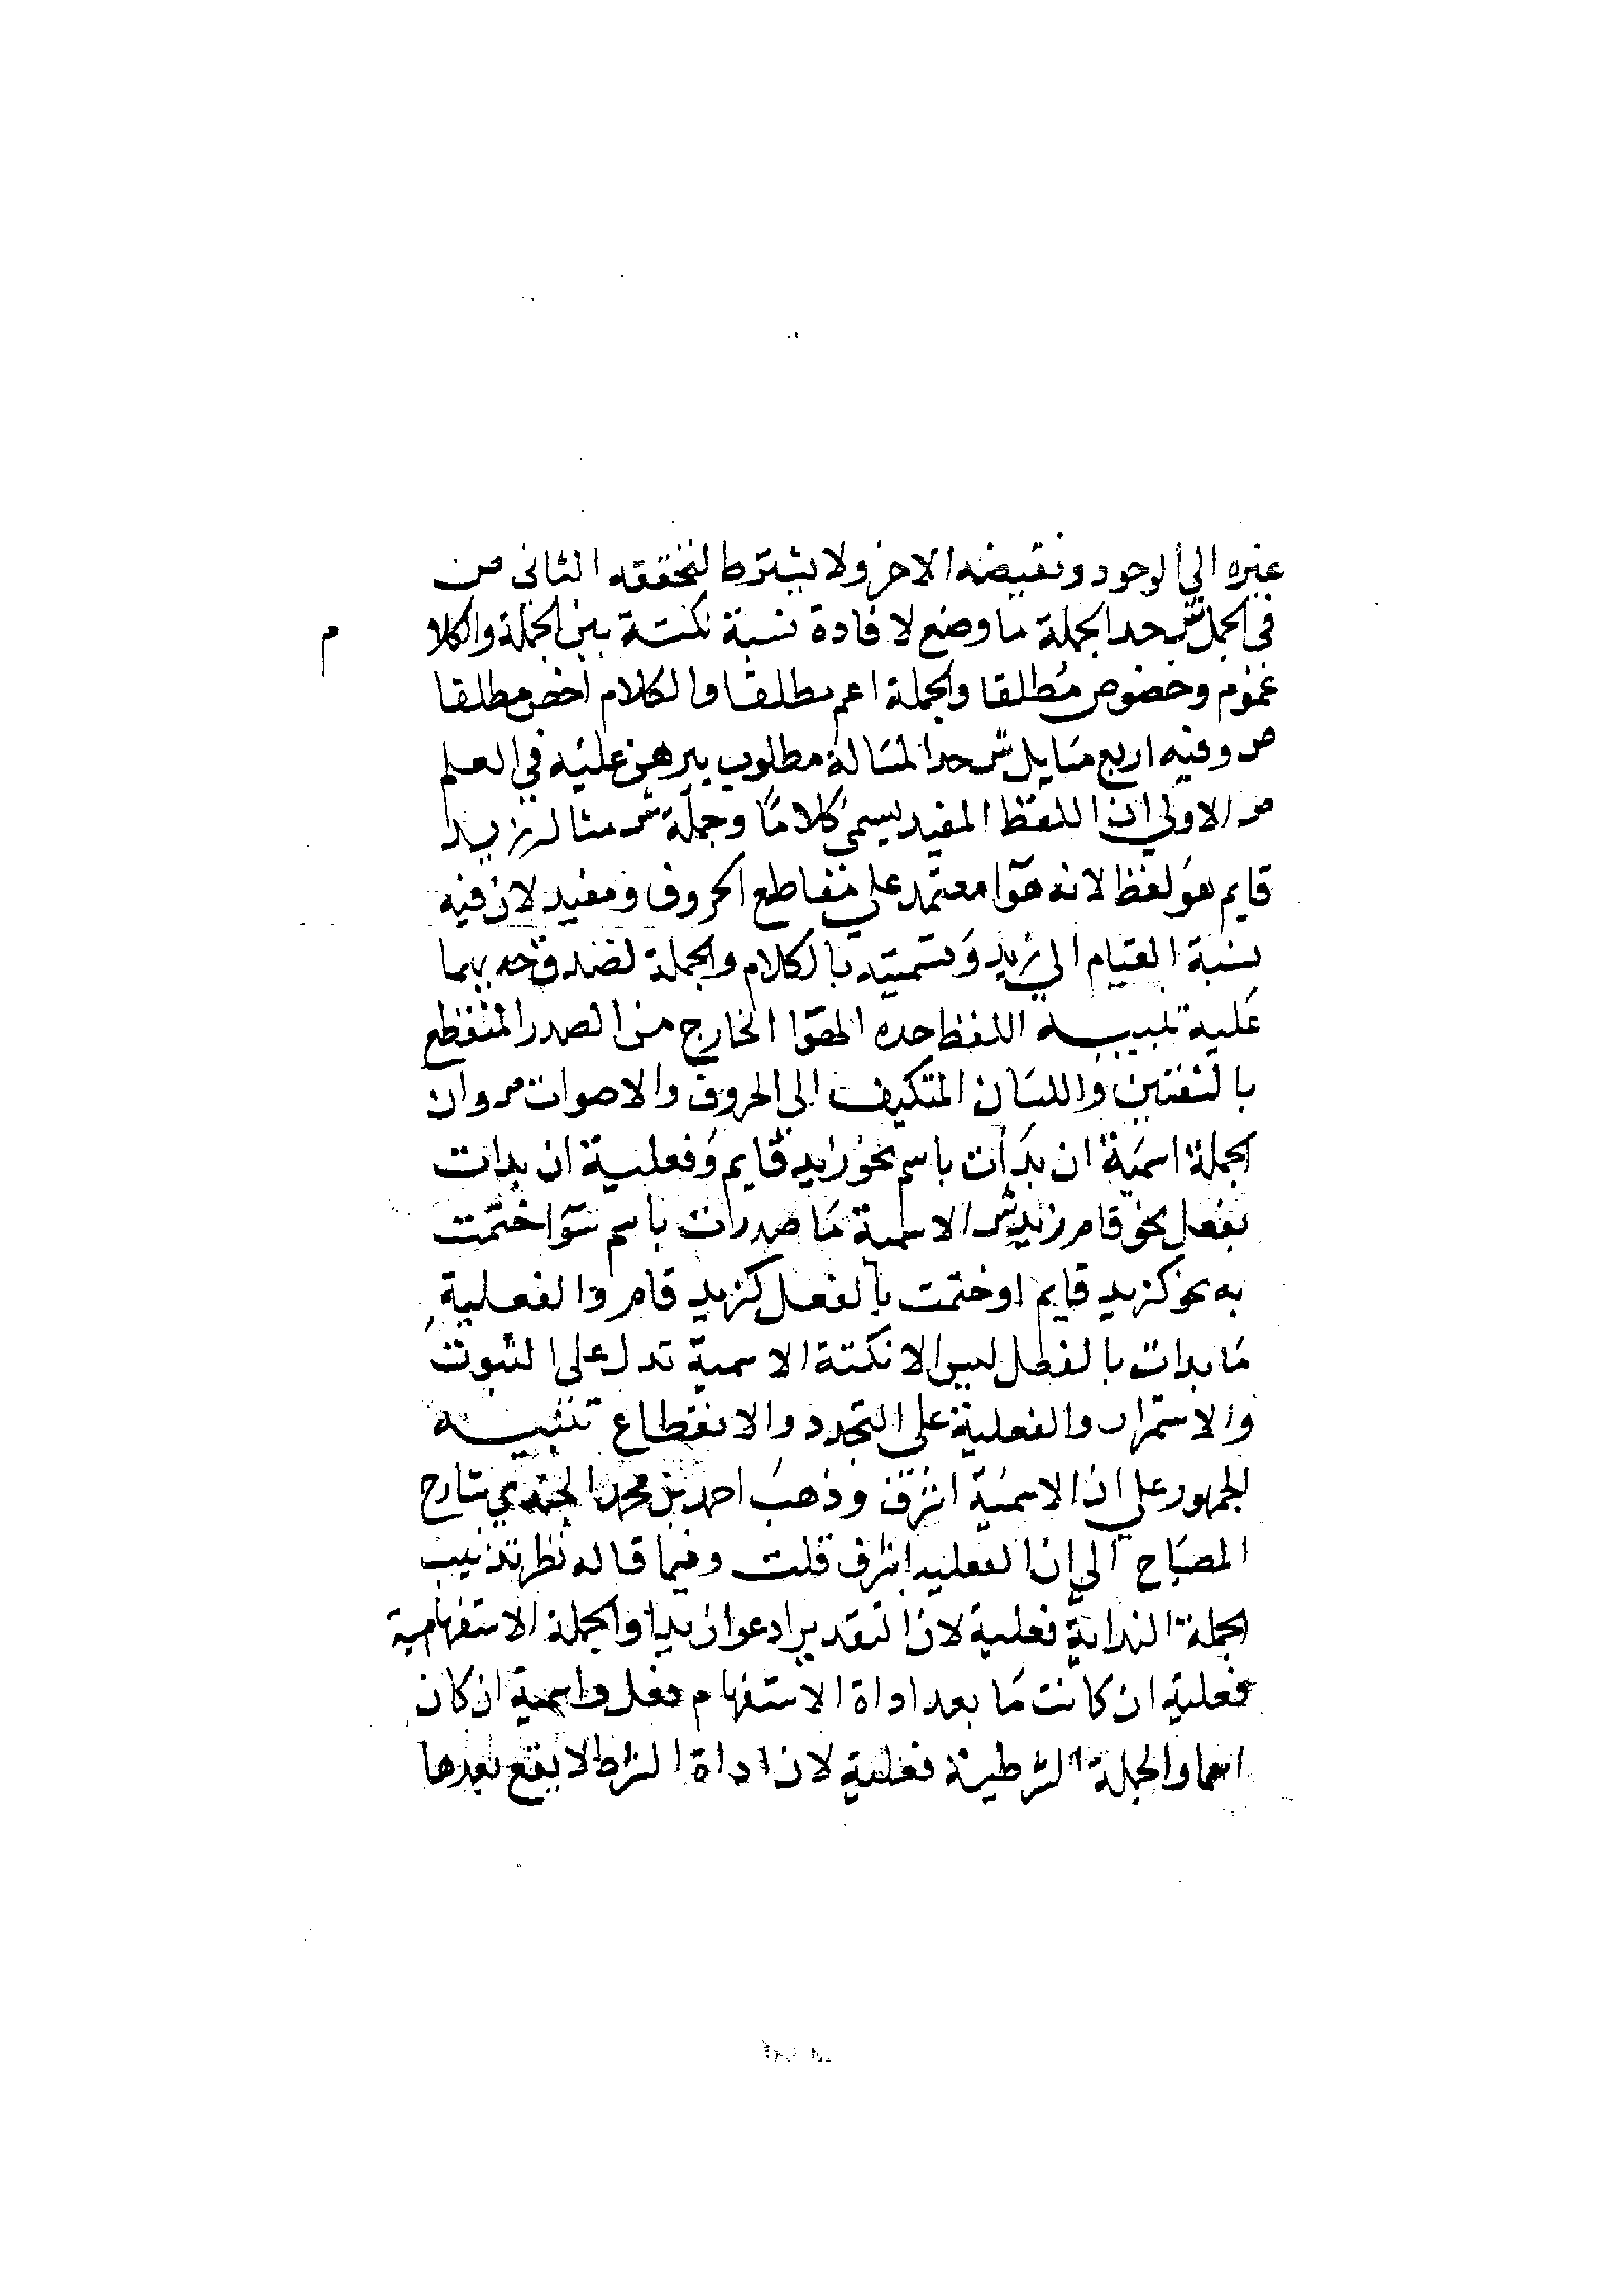 غيره الي الوجود ونقيضه الاخر ولا يشترط لتحققه الثاني ص
في الجمل ش حد الجملة ما وضع لافادة نسبة نكتة بين الجملة والكلام
عموم وخصوص مطلقا والجملة اعم مطلقا والكلام اخص مطلقا
ص وفيه اربع مسايل ش حد المسالة مطلوب يبرهن عليه في العلم
ص الاولي ان اللفظ المفيد يسمي كلاما وجملة ش مثاله زيد
قايم هو لفظ لانه هوا معتمد علي مقاطع الحروف ومفيد لان فيه
نسبة القيام الي زيد وتسميته بالكلام والجملة لصدق حديهما
عليه تنبيه اللفظ حده الهوا الخارج من الصدر المنقطع
بالشفتين واللسان المتكيف الي الحروف والاصوات ص وان
الجملة اسمية ان بدات باسم نحو زيد قايم وفعلية ان بدات
بفعل نحو قام زيد ش الاسمية ما صدرات باسم سوا ختمت
به نحو كزيد قايم او ختمت بالفعل كزيد قام والفعلية
ما بدات بالفعل ليس الا نكتة الاسمية تدل علي الثبوت
والاستمرار والفعلية علي التجدد والانقطاع تنبيه
الجمهور علي ان الاسمية اشرف وذهب احمد بن محمد الجندي شارح
المصباح الي ان الفعلية اشرف قلت وفيما قاله نظر تذنيب
الجملة الندائية فعلية لان التقدير ادعوا زيدا والجملة الاستفهامية
فعلية ان كانت ما بعد اداة الاستفهام فعل واسمية ان كان
اسما والجملة الشرطية فعلية لان اداة الشرط لا يقع بعدها